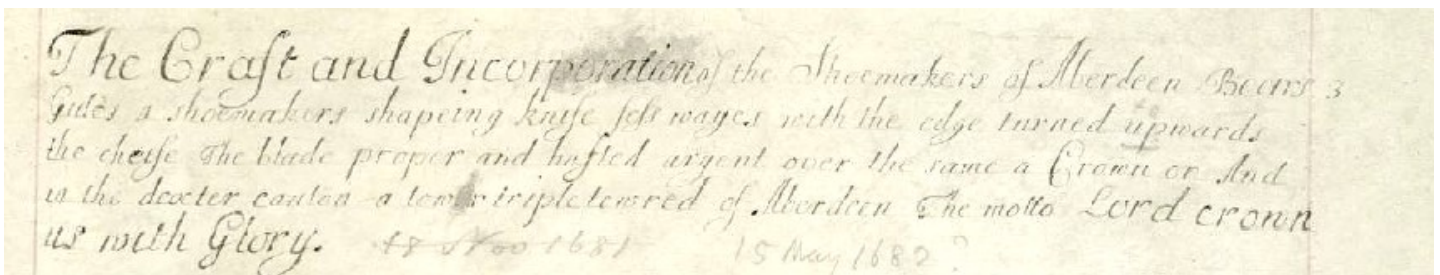 The Craft and Incorporation of the Shoemakers of Aberdeen Bears
Gules a shoemakers shapeing knife fess wayes with the edge turned upwards
the cheife The blade proper and hafted argent over the same a Crown or And
in the dexter canton a tower tripletowred of Aberdeen The motto Lord crown
us with Glory. 18 Nov 1681 15 May 1682?